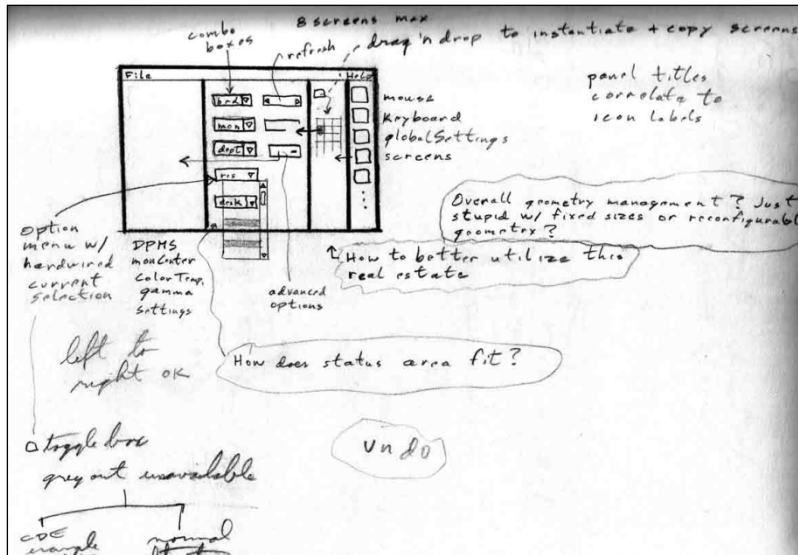 8 screens max
drag 'n drop to instantiate + copy screens
combo
boxes
refresh
File
Help
brd
mon
dept
res
desk
mouse
keyboard
globalSettings
screens
panel titles
correlate to
icon labels
Overall geometry management? Just
stupid w/ fixed sizes or reconfigurable
geometry?
How to better utilize this
real estate
Option
menu w/
hardwired
current
selection
DPMS
monCenter
Color Temp,
gamma
settings
advanced
options
left to
right OK
How does status area fit?
undo
toggle box
grey out unavailable
CDE
example
normal